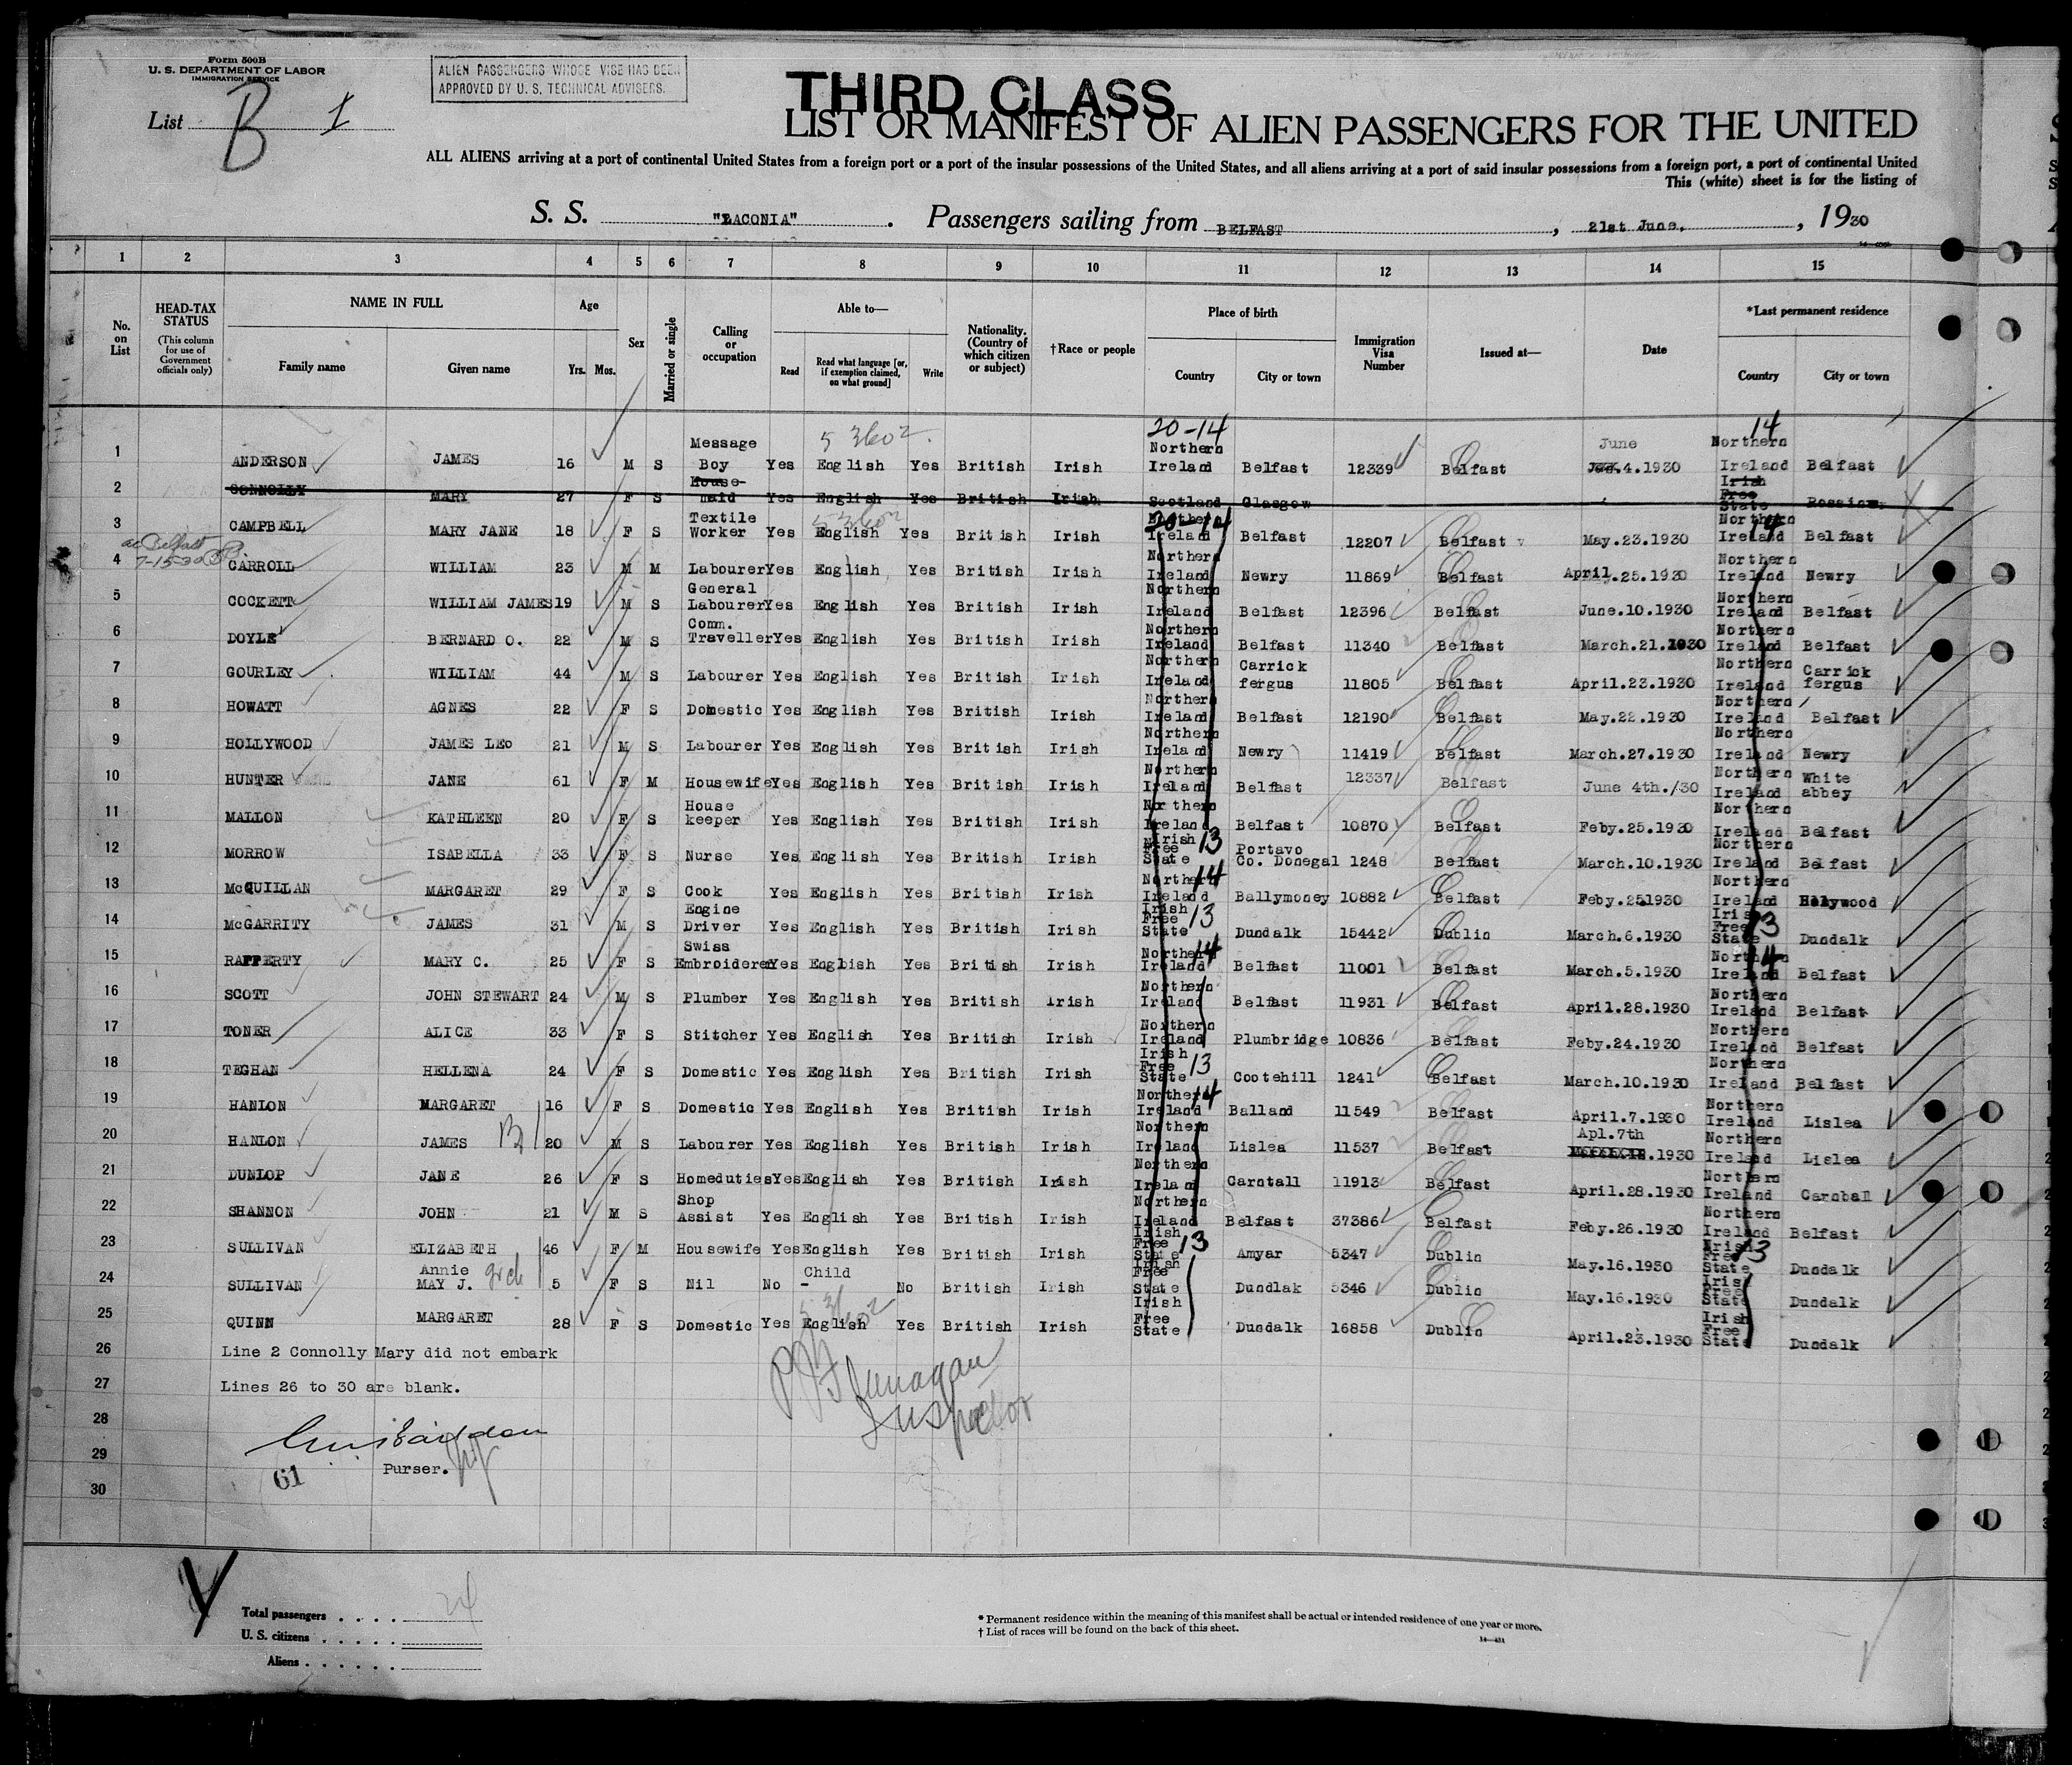 Form 500B
U. S. DEPARTMENT OF LABOR
IMMIGRATION SERVICE
ALIEN PASSENGERS WHOSE VISE HAS BEEN
APPROVED BY U. S. TECHNICAL ADVISERS.
List B 1
THIRD CLASS
LIST OR MANIFEST OF ALIEN PASSENGERS FOR THE UNITED
ALL ALIENS arriving at a port of continental United States from a foreign port or a port of the insular possessions of the United States, and all aliens arriving at a port of said insular possessions from a foreign port, a port of continental United
This (white) sheet is for the listing of
S. S. "LACONIA". Passengers sailing from BELFAST, 21st June, 1930
1 2 3 4 5 6 7 8 9 10 11 12 13 14 15
No. on List
HEAD-TAX STATUS (This column for use of Government officials only)
NAME IN FULL Family name Given name
Age Yrs. Mos.
Sex
Married or single
Calling or occupation
Able to— Read Read what language [or, if exemption claimed, on what ground] Write
Nationality. (Country of which citizen or subject)
†Race or people
Place of birth Country City or town
Immigration Visa Number
Issued at—
Date
*Last permanent residence Country City or town
5 3602 20-14 14
1 ANDERSON JAMES 16 M S Message Boy Yes English Yes British Irish Northern Ireland Belfast 12339 Belfast June 4.1930 Northern Ireland Belfast
2 CONNOLLY MARY 27 F S House-maid Yes English Yes British Irish Scotland Glasgow Irish Free State
5 3602 20-14 14
3 CAMPBELL MARY JANE 18 F S Textile Worker Yes English Yes British Irish Northern Ireland Belfast 12207 Belfast May.23.1930 Northern Ireland Belfast
4 CARROLL WILLIAM 23 M M Labourer Yes English Yes British Irish Northern Ireland Newry 11869 Belfast April.25.1930 Northern Ireland Newry
5 COCKETT WILLIAM JAMES 19 M S General Labourer Yes English Yes British Irish Northern Ireland Belfast 12396 Belfast June.10.1930 Northern Ireland Belfast
6 DOYLE BERNARD O. 22 M S Comm. Traveller Yes English Yes British Irish Northern Ireland Belfast 11340 Belfast March.21.1930 Northern Ireland Belfast
7 GOURLEY WILLIAM 44 M S Labourer Yes English Yes British Irish Northern Ireland Carrick fergus 11805 Belfast April.23.1930 Northern Ireland Carrick fergus
8 HOWATT AGNES 22 F S Domestic Yes English Yes British Irish Northern Ireland Belfast 12190 Belfast May.22.1930 Northern Ireland Belfast
9 HOLLYWOOD JAMES LEO 21 M S Labourer Yes English Yes British Irish Northern Ireland Newry 11419 Belfast March.27.1930 Northern Ireland Newry
10 HUNTER JANE 61 F M Housewife Yes English Yes British Irish Northern Ireland Belfast 12337 Belfast June 4th./30 Northern Ireland White abbey
11 MALLON KATHLEEN 20 F S House keeper Yes English Yes British Irish Northern Ireland Belfast 10870 Belfast Feby.25.1930 Northern Ireland Belfast
12 MORROW ISABELLA 33 F S Nurse Yes English Yes British Irish Irish Free State 13 Portavo Co. Donegal 1248 Belfast March.10.1930 Northern Ireland Belfast
13 McQUILLAN MARGARET 29 F S Cook Yes English Yes British Irish Northern Ireland 14 Ballymoney 10882 Belfast Feby.25.1930 Northern Ireland Holywood
14 McGARRITY JAMES 31 M S Engine Driver Yes English Yes British Irish Irish Free State 13 Dundalk 15442 Dublin March.6.1930 Irish Free State 13 Dundalk
15 RAFFERTY MARY C. 25 F S Swiss Embroiderer Yes English Yes British Irish Northern Ireland 14 Belfast 11001 Belfast March.5.1930 Northern Ireland 14 Belfast
16 SCOTT JOHN STEWART 24 M S Plumber Yes English Yes British Irish Northern Ireland Belfast 11931 Belfast April.28.1930 Northern Ireland Belfast
17 TONER ALICE 33 F S Stitcher Yes English Yes British Irish Northern Ireland Plumbridge 10836 Belfast Feby.24.1930 Northern Ireland Belfast
18 TEGHAN HELLENA 24 F S Domestic Yes English Yes British Irish Irish Free State 13 Cootehill 1241 Belfast March.10.1930 Northern Ireland Belfast
19 HANLON MARGARET 16 F S Domestic Yes English Yes British Irish Northern Ireland 14 Balland 11549 Belfast April.7.1930 Northern Ireland Lislea
20 HANLON JAMES 20 M S Labourer Yes English Yes British Irish Northern Ireland Lislea 11537 Belfast Apl.7th .1930 Northern Ireland Lislea
21 DUNLOP JANE 26 F S Homeduties Yes English Yes British Irish Northern Ireland Carntall 11913 Belfast April.28.1930 Northern Ireland Carnball
22 SHANNON JOHN 21 M S Shop Assist Yes English Yes British Irish Northern Ireland Belfast 37386 Belfast Feby.26.1930 Northern Ireland Belfast
23 SULLIVAN ELIZABETH 46 F M Housewife Yes English Yes British Irish Irish Free State 13 Amyar 5347 Dublin May.16.1930 Irish Free State 13 Dundalk
24 SULLIVAN Annie MAY J. grch 5 F S Nil No Child - No British Irish Irish Free State Dundlak 5346 Dublin May.16.1930 Irish Free State Dundalk
5 3602
25 QUINN MARGARET 28 F S Domestic Yes English Yes British Irish Irish Free State Dundalk 16858 Dublin April.23.1930 Irish Free State Dundalk
26 Line 2 Connolly Mary did not embark
27 Lines 26 to 30 are blank.
P J Flanagan
Inspector
28
29
Purser.
61
30
Total passengers . . . . 24
U. S. citizens . . . . .
Aliens . . . . . .
* Permanent residence within the meaning of this manifest shall be actual or intended residence of one year or more.
† List of races will be found on the back of this sheet.